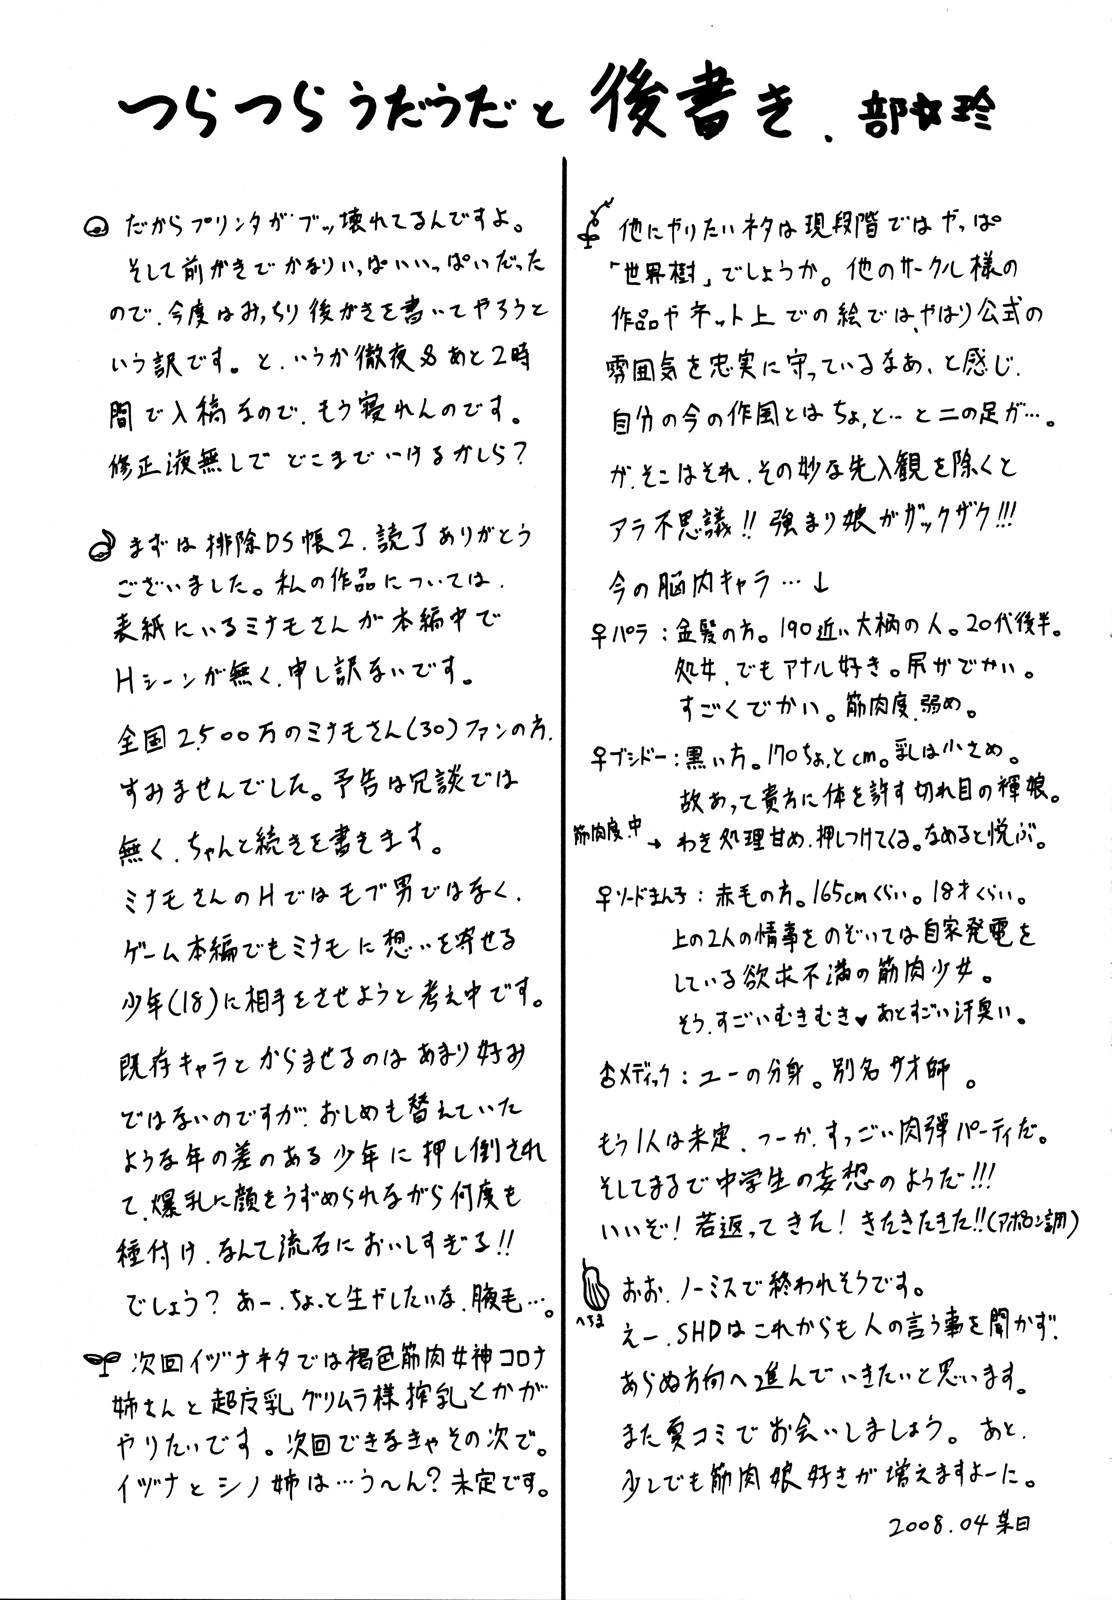 つらつらうだうだと後書き. 部☆珍
だからプリンタがブッ壊れてるんですよ。
そして前がきでかなりいっぱいいっぱいだった
ので、今度はみっちり後がきを書いてやろうと
いう訳です。と、いうか徹夜&あと2時
間で入稿なので、もう寝れんのです。
修正液無しでどこまでいけるかしら?
まずは排除DS帳2、読了ありがとう
ございました。私の作品については、
表紙にいるミナモさんが本編中で
Hシーンが無く、申し訳ないです。
全国2,500万のミナモさん(30)ファンの方、
すみませんでした。予告は冗談では
無く、ちゃんと続きを書きます。
ミナモさんのHではモブ男ではなく、
ゲーム本編でもミナモに想いを寄せる
少年(18)に相手をさせようと考え中です。
既存キャラとからませるのはあまり好み
ではないのですが、おしめも替えていた
ような年の差のある少年に押し倒され
て、爆乳に顔をうずめられながら何度も
種付け、なんて流石においしすぎる!!
でしょう?あー、ちょっと生やしたいな、腋毛…。
次回イヅナネタでは褐色筋肉女神コロナ
姉さんと超反乳グリムラ様搾乳とかが
やりたいです。次回できなきゃその次で。
イヅナとシノ姉は…う〜ん?未定です。
他にやりたいネタは現段階ではやっぱ
「世界樹」でしょうか。他のサークル様の
作品やネット上での絵では、やはり公式の
雰囲気を忠実に守っているなあ、と感じ、
自分の今の作風とはちょっと…と二の足が…。
が、そこはそれ、その妙な先入観を除くと
アラ不思議!!強まり娘がザックザク!!!
今の脳内キャラ…↓
♀パラ:金髪の方。190近い大柄の人。20代後半。
処女、でもアナル好き。尻がでかい。
すごくでかい。筋肉度、弱め。
♀ブシドー:黒い方。170ちょっとcm。乳は小さめ。
故あって貴方に体を許す切れ目の褌娘。
筋肉度、中→わき処理甘め、押しつけてくる。なめると悦ぶ。
♀ソードまん子:赤毛の方。165cmくらい。18才くらい。
上の2人の情事をのぞいては自家発電を
している欲求不満の筋肉少女。
そう、すごいむきむき♥あとすごい汗臭い。
♂メディック:ユーの分身。別名サオ師。
もう1人は未定、つーか、すっごい肉弾パーティだ。
そしてまるで中学生の妄想のようだ!!!
いいぞ!若返ってきた!きたきたきた!!(アポロン調)
へちま
おお、ノーミスで終われそうです。
えー、SHDはこれからも人の言う事を聞かず、
あらぬ方向へ進んでいきたいと思います。
また夏コミでお会いしましょう。あと、
少しでも筋肉娘好きが増えますよーに。
2008.04某日